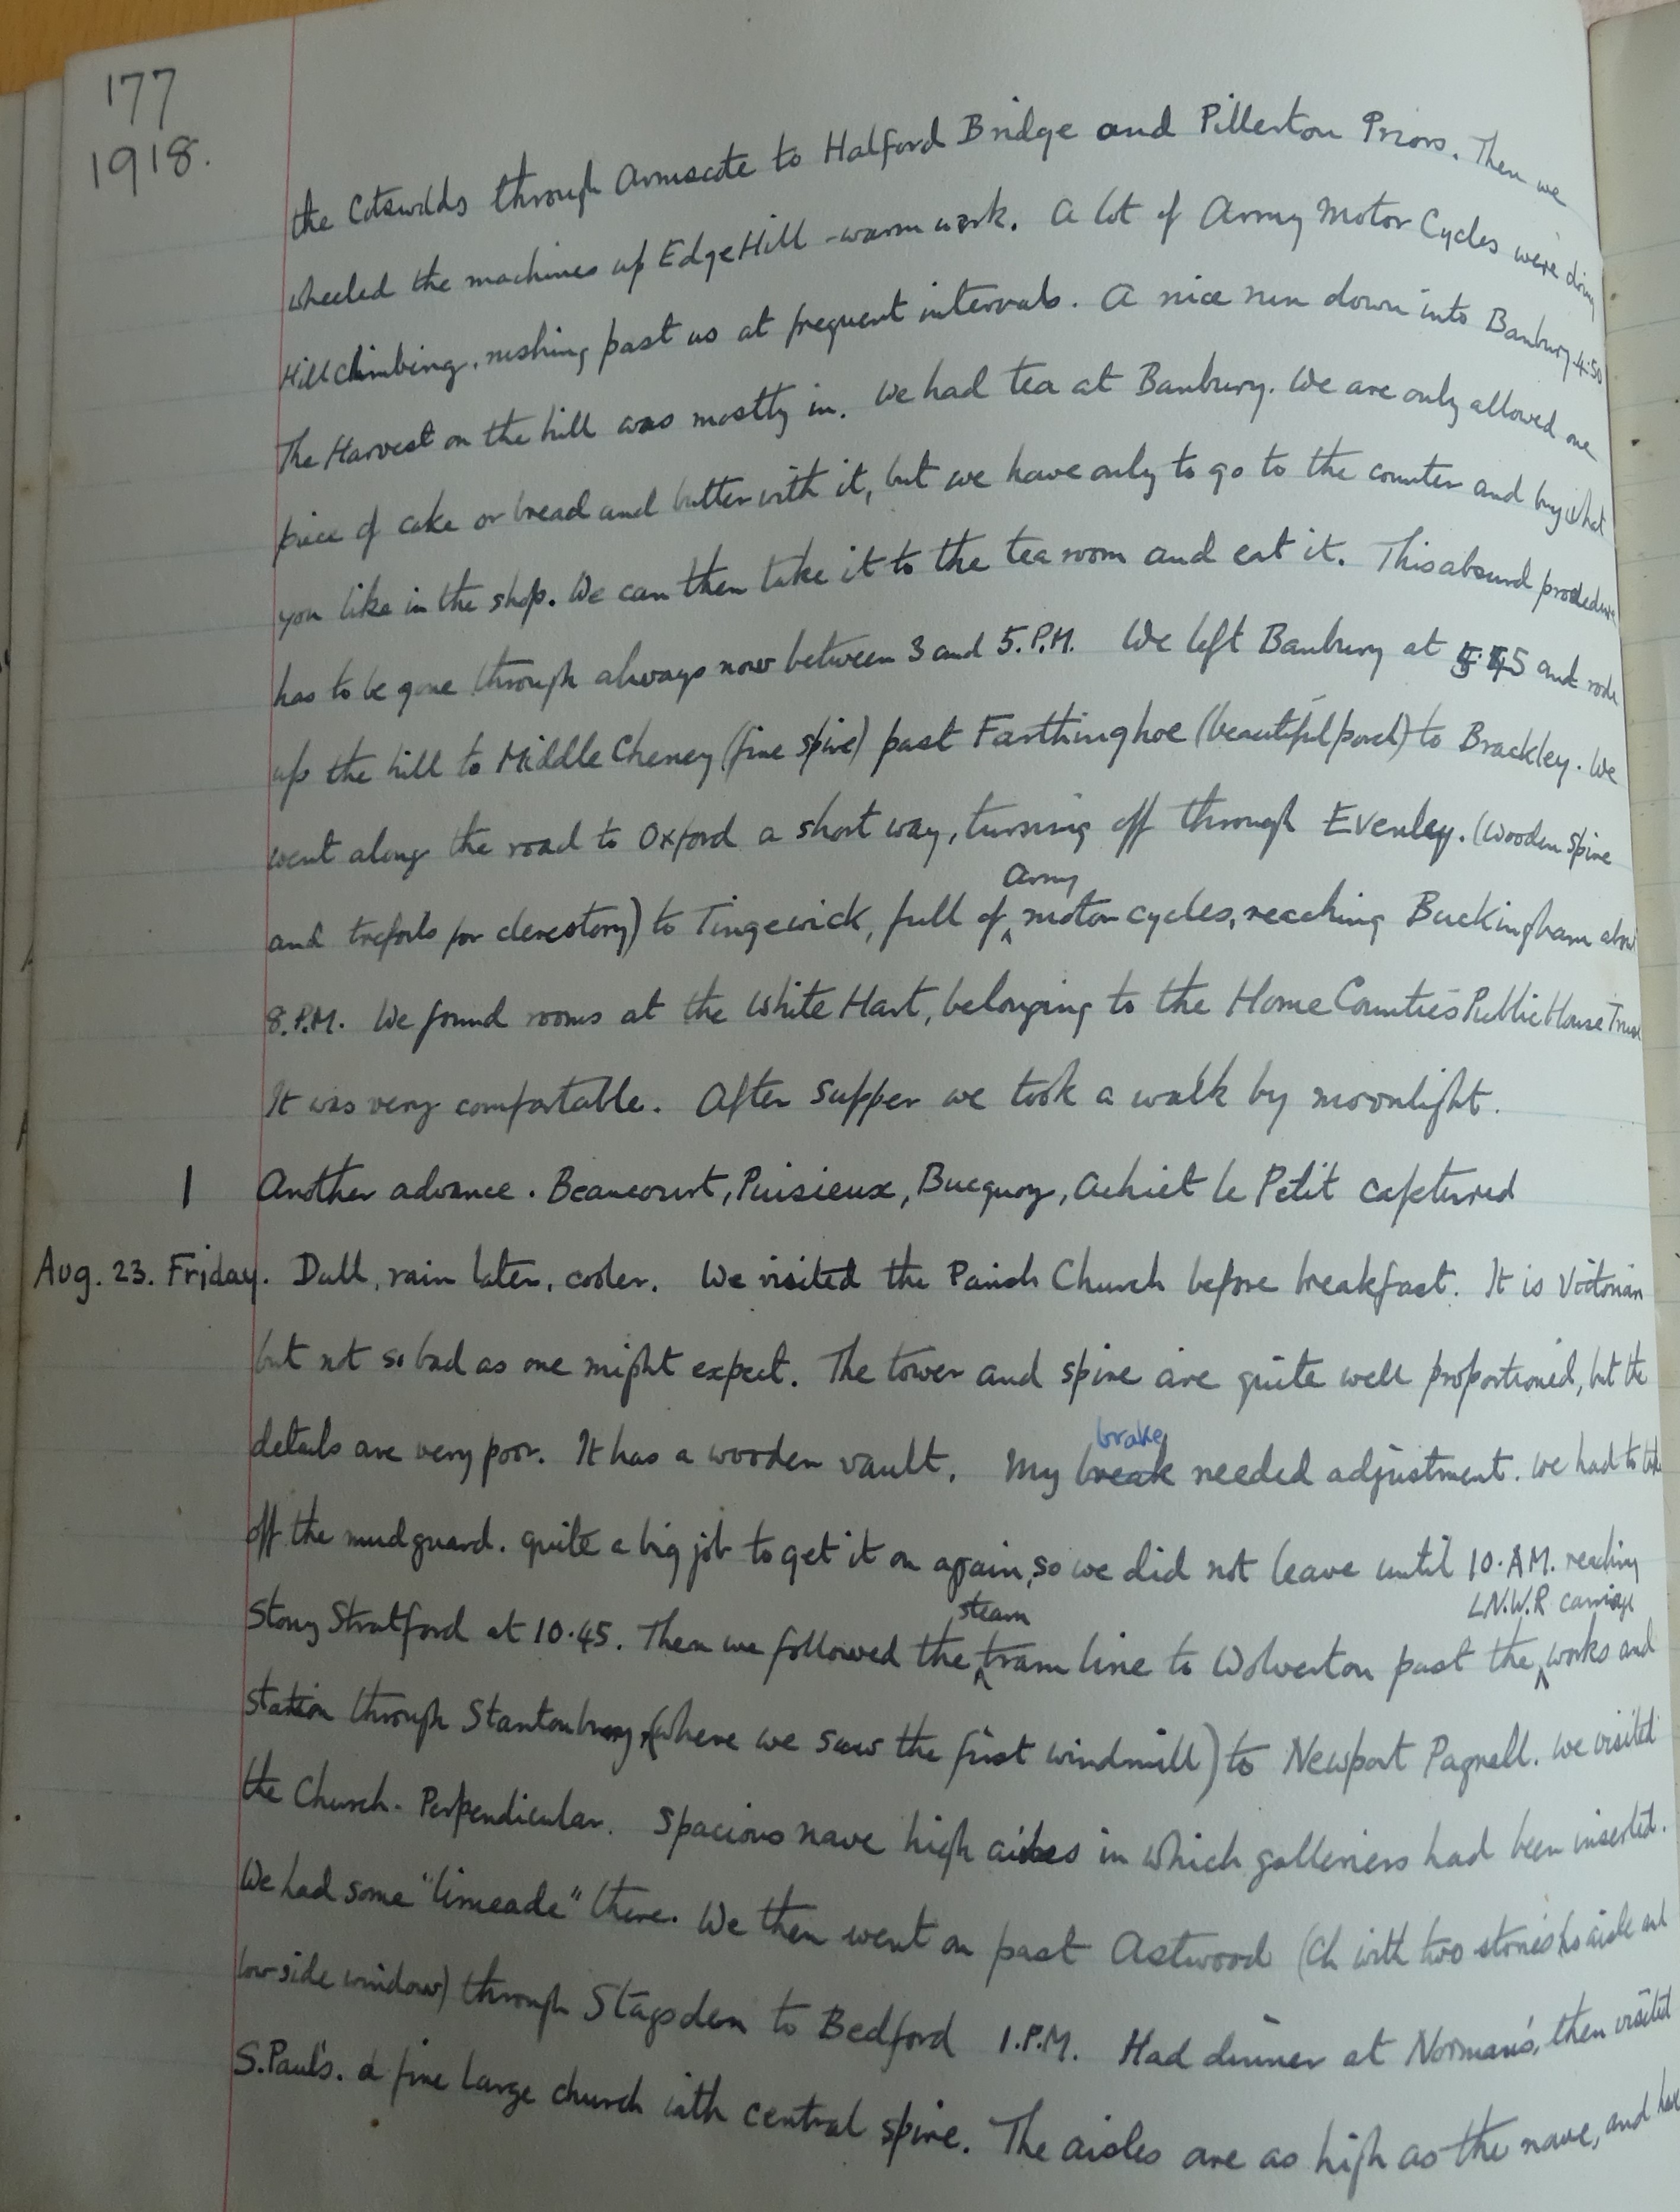 177
1918.
the Cotswolds through Armscote to Halford Bridge and Pillerton Priors. Then we
wheeled the machines up Edge Hill - warm work. A lot of Army Motor Cycles were doing
Hill climbing, rushing past us at frequent intervals. A nice run down into Banbury 4.50
The Harvest on the hill was mostly in. We had tea at Banbury. We are only allowed one
piece of cake or bread and butter with it, but we have only to go to the counter and buy what
you like in the shop. We can then take it to the tea room and eat it. This absurd procedure
has to be gone through always now between 3 and 5. P.M. We left Banbury at 5.45 and rode
up the hill to Middle Cheney (fine spire) past Farthinghoe (beautiful porch) to Brackley. We
went along the road to Oxford a short way, turning off through Evenley. (Wooden spire
and trefoils for clerestory) to Tingewick, full of Army motor cycles, reaching Buckingham about
8. P.M. We found rooms at the White Hart, belonging to the Home Counties Public House Trust
It was very comfortable. After supper we took a walk by moonlight.
| Another advance. Beaucourt, Puisieux, Bucquoy, Achiet le Petit captured
Aug. 23. Friday. Dull, rain later, cooler. We visited the Parish Church before breakfast. It is Victorian
but not so bad as one might expect. The tower and spire are quite well proportioned, but the
details are very poor. It has a wooden vault. My break brake needed adjustment. We had to take
off the mudguard. quite a big job to get it on again, so we did not leave until 10. A.M. reaching
Stony Stratford at 10.45. Then we followed the steam tram line to Wolverton past the L.N.W.R carriage works and
station through Stantonbury, (where we saw the first windmill) to Newport Pagnell. We visited
the Church. Perpendicular. Spacious nave high aisles in which galleries had been inserted.
We had some "limeade" there. We then went on past Astwood (Ch with two stories to aisle and
low side window) through Stagsden to Bedford 1. P.M. Had dinner at Norman's, then visited
S. Paul's. a fine large church with central spire. The aisles are as high as the nave, and